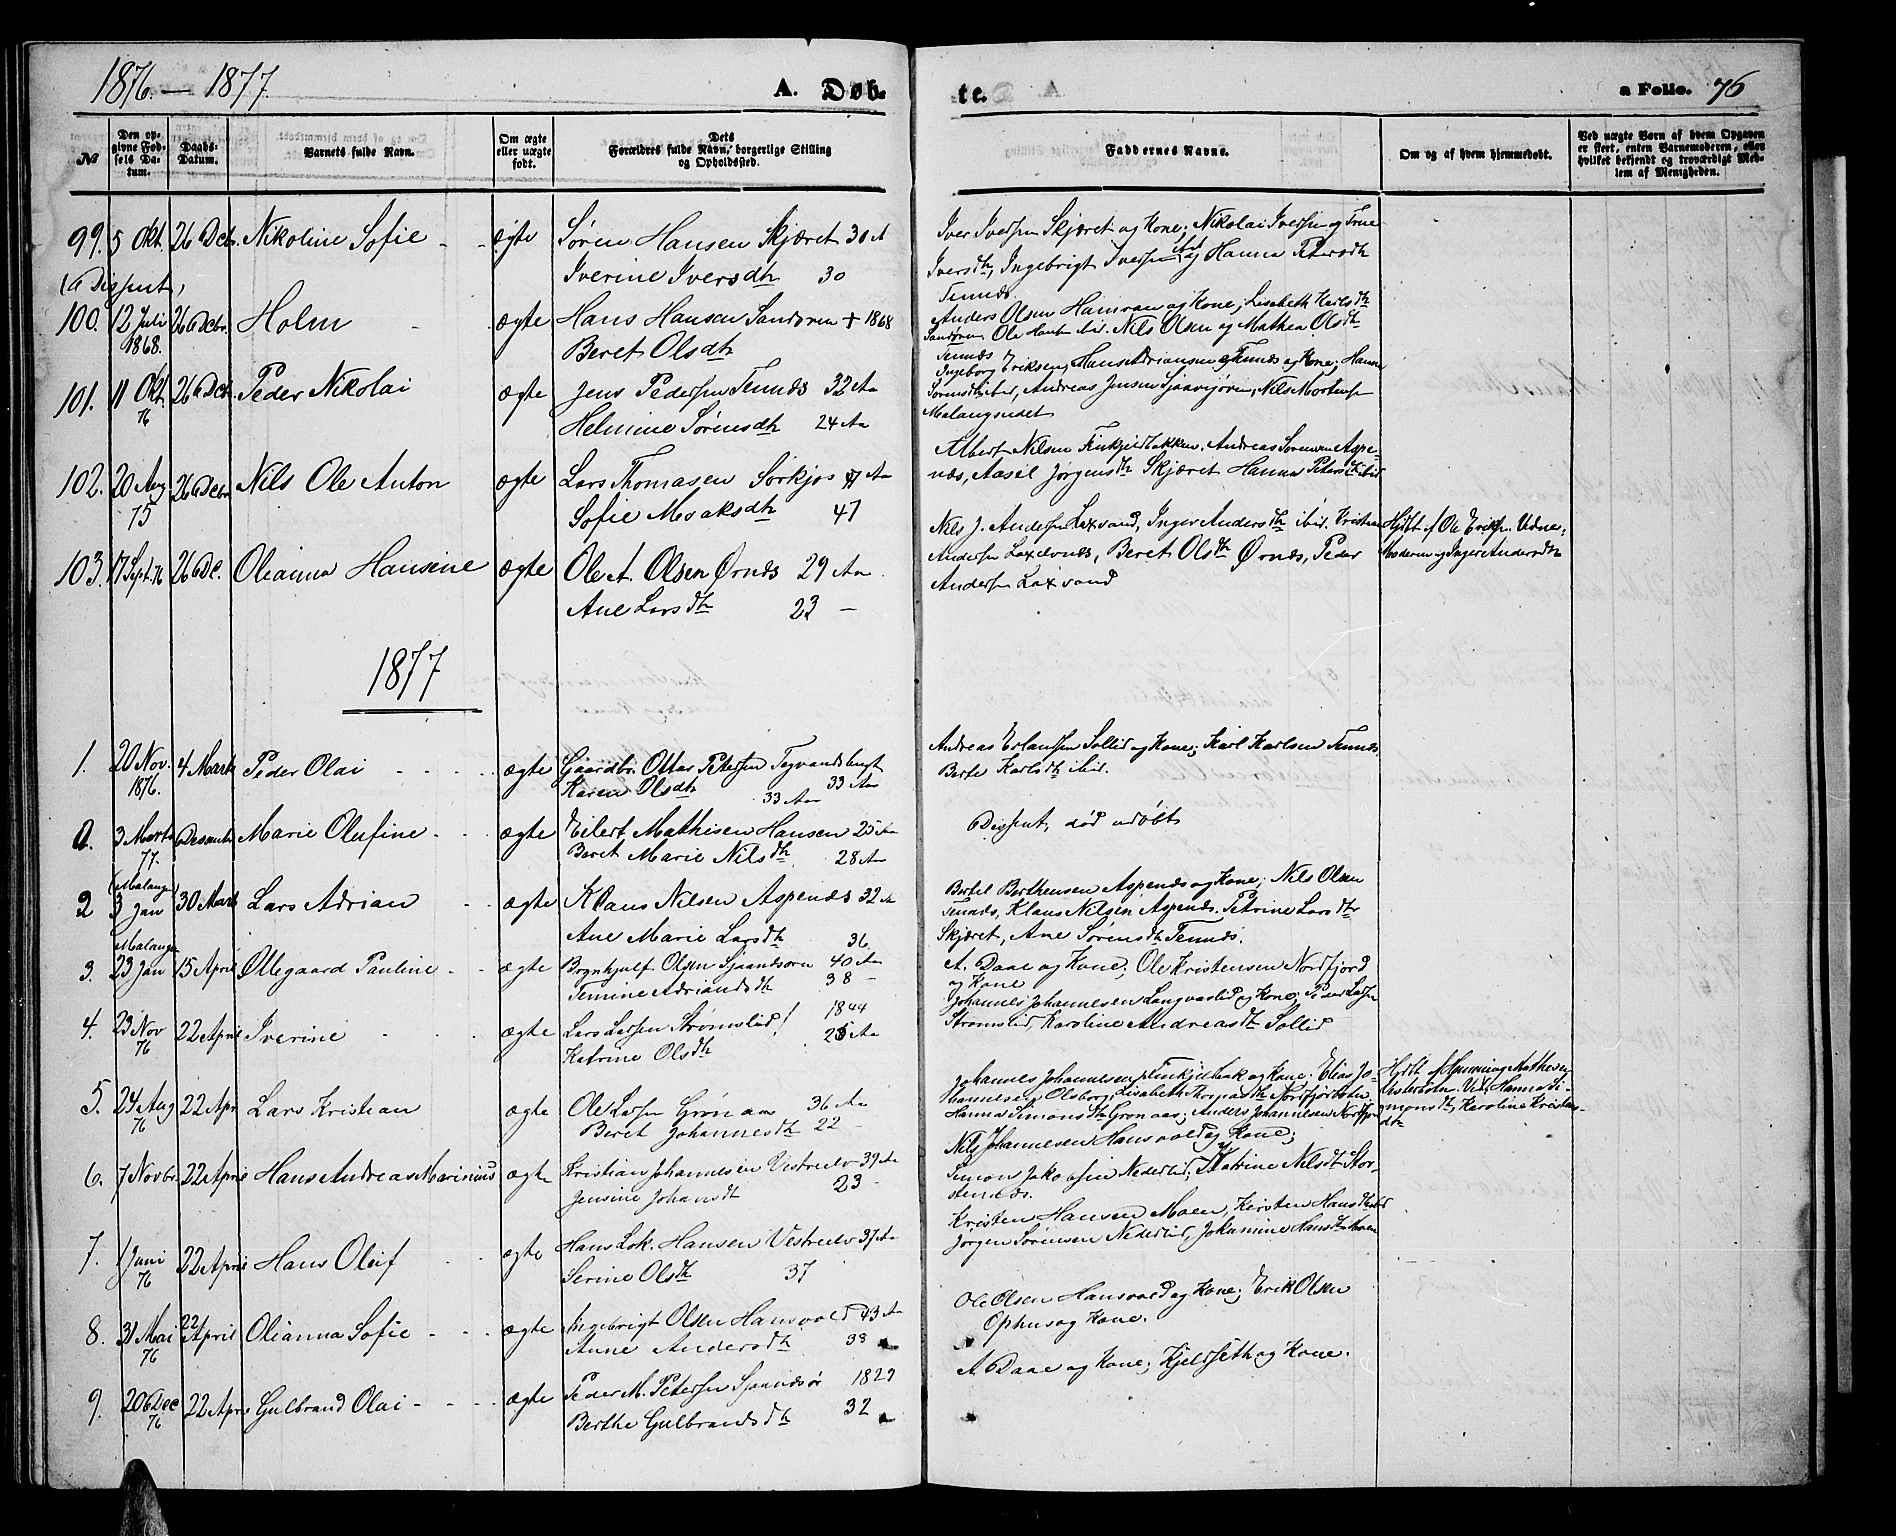 1876. — 1877.
A. Døb-
te.
a Folio. 76
№
Den op-
givne Fød-
sels Da-
tum.
Daabs-
Datum.
Barnets fulde Navn.
Om ægte
eller uægte
født.
Dets
Forældres fulde Navn, borgerlige Stilling
og Opholdssted.
Faddernes Navne.
Om og af hvem hjemmedøbt.
Ved uægte Børn af hvem Opgaven
er skeet, enten Barnemoderen, eller
hvilket bekjendt og troværdigt Med-
lem af Menigheden.
99. 5 Okt. 26 Decb. Nikoline Sofie - - ægte Søren Hansen Skjæret 30 A
Iverine Iversdtr 30
Iver Iversen Skjæret og Kone; Nikolai Iversen og Trine
Iversdtr, Ingebrigt Iversen ibid og Hanna Petersdtr
Tennæs
(a Dissent)
100. 12 Juli 26 Decbr. Holm - ægte Hans Hansen Sandøren + 1868
1868. Beret Olsdtr
Anders Olsen Hamvaan og Kone; Lisabeth Karlsdtr
Sandøren Ole Hans ibid. Nils Olsen og Mathea Olsdtr
Tennæs
101. 11 Okt. 26 Decb. Peder Nikolai ægte Jens Pedersen Tennæs 32 Aa
76 Helmine Sørensdtr 24 Aa
Ingeborg Eriksen, Hans Adriansen Tennæs og Kone; Hanna
Sørensdtr ibid, Andreas Jensen Sjaavjøren, Nils Mortensen
Malangseidet
102. 20 Aug 26 Decbr Nils Ole Anton ægte Lars Thomasen Sørkjos Aa
75 Sofie Isaksdtr 47
Albert Nilsen Finkjeldbakken. Andreas Sørensen Aspe-
næs, Aasel Jørgensdtr Skjæret Hanna Petersdtr ibid
103. 17 Sept. 76 26 De. Olianna Hansine ægte Ole A. Olsen Ørnæs 29 Aa
Ane Larsdtr 23 -
Nils J. Andersen Laxvand, Inger Andersdtr ibid. Kristian
Andersen Laxelvnæs, Beret Olsdtr Ørnæs, Peder
Andersen Laxvand
Hjdt af Ole Eriks. Vidne:
Moderen og Inger Andersdtr
1877
1. 20 Nov. 4 Marts Peder Olai - - - - ægte Gaardbr. Ottar Petersen Tagvandsbugt
1876. Karen Olsdtr 33 Aa 33 Aa
Andreas Erlandsen Sollid og Kone; Karl Karlsen Tennæs
Berte Karlsdtr ibid.
a. 3 Marts Dissent Marie Olufine - - ægte Eilert Mathisen Hansen 25 Aa
77. Beret Marie Nilsdtr 28 Aa
Dissent, død udøbt
(Malangen)
2 3 Jan 30 Marts Lars Adrian - ægte Klaus Nilsen Aspenæs 32 A
Ane Marie Larsdtr 36
Bertel Berthensen Aspenæs og Kone; Nils Olsen
Tennæs, Klaus Nilsen Aspenæs. Petrine Larsdtr
Skjæret, Ane Sørensdtr Tennæs.
Malangen
3. 23 Jan 15 April Øllegaard Pauline - - ægte Brynhjulf Olsen Sjaandsøren 40 Aa
Temine Adriansdtr 38 -
A. Daae og Kone; Ole Kristensen Nordfjord
og Kone
4. 23 Nov 22 April Iverine - - ægte Lars Larsen Strømslid! 1844
76 Katrine Olsdtr 26 Aa
Johannes Johannesen Langvaslid og Kone; Peder Larsen
Strømslid Karoline Andreasdtr Sollid
5. 24 Aug 22 Apr Lars Kristian ægte Ole Larsen Grønaas 36 Aa
76 Beret Johannesdtr 22 -
Johannes Johannesen Finkjelbak og Kone. Elias Jo-
hannesen Olsborg, Lisabeth Thomasdtr Nordfjorbotn
Hanna Simonsdtr Grønaas; Anders Johannesen Nordfjord
Hjdt af Henning Mathesen
Øvsterbotn. Vid. Hanna Si-
monsdtr, Karoline Kristens-
dtr
6. 7 Novbr. 22 April Hans Andreas Marinius ægte Kristian Johannesen Vestrelv 39 Aa
Jensine Johansdt 23 -
Nils Johannesen Hansvold og Kone;
Simon Jakobsen Nederlid, Katrine Nilsdtr Stor-
stennæs.
7. 1 Juni 22 April Hans Oluf - - ægte Hans Lok. Hansen Vestrelv 37 Aa
76 Serine Olsdtr 37
Kristen Hansen Moen, Kirsten Hansdtr ibid
Jørgen Sørensen Nederlid, Johannine Hansdtr Moen
8. 31 Mai 22 April Olianna Sofie - - - ægte Ingebrigt Olsen Hansvold 43 Aa
76 Anne Andersdtr 38
Ole Olsen Hansvold og Kone; Erik Olsen
Ophus og Kone.
9. 20 Dec 22 April Gulbrand Olai - - - - ægte Peder M. Petersen Sjaandsør 1829
76 Berthe Gulbrandsdtr 32
A. Daae og Kone; Kjeldseth og Kone.